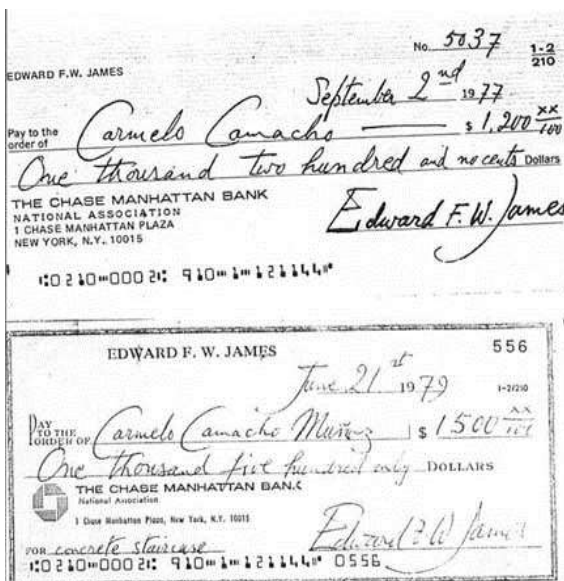 No. 5037 1-2
210
EDWARD F.W. JAMES
September 2nd 1977
Pay to the
order of Carmelo Camacho $ 1,200 xx/100
One thousand two hundred and no cents Dollars
THE CHASE MANHATTAN BANK
NATIONAL ASSOCIATION
1 CHASE MANHATTAN PLAZA
NEW YORK, N.Y. 10015
Edward F. W. James
⑆0210⑉0002⑆ 910⑉1⑉121144⑈
EDWARD F. W. JAMES 556
June 21st 1979 1-2/210
PAY
TO THE
ORDER OF Carmelo Camacho Muñoz $ 1500 xx/100
One thousand five hundred only DOLLARS
THE CHASE MANHATTAN BANK
National Association
1 Chase Manhattan Plaza, New York, N.Y. 10015
Edward F. W. James
FOR concrete staircase
⑆0210⑉0002⑆ 910⑉1⑉121144⑈ 0556